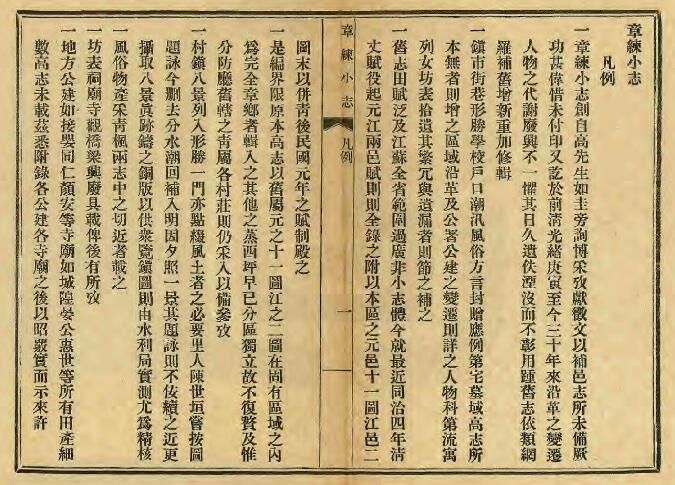 章練小志
凡例
一章練小志創自高先生如圭旁詢博采攷獻徵文以補邑志所未備厥
功甚偉惜未付印又訖於前淸光緒庚寅至今三十年來沿革之變遷
人物之代謝廢興不一懼其日久遺佚湮沒而不彰用踵舊志依類網
羅補舊增新重加修輯
一鎭市街巷形勝學校戶口潮汛風俗方言封贈應例第宅墓域高志所
本無者則增之區域沿革及公署公建之變遷則詳之人物科第流寓
列女坊表拾遺其繁冗與遺漏者則節之補之
一舊志田賦泛及江蘇全省範圍過廣非小志體今就最近同治四年淸
丈賦役起元江兩邑賦則則全錄之附以本區之元邑十一圖江邑二
章練小志
凡例
一
圖末以併靑後民國元年之賦制殿之
一是編界限原本高志以舊屬元之十一圖江之二圖在固有區域之內
爲完全章鄉者輯入之其他之蒸西坪早已分區獨立故不復贅及惟
分防廳舊轄之靑屬各村莊則仍采入以備參攷
一村鎭八景列入形勝一門亦點綴風土者之必要里人陳世垣嘗按圖
題詠今刪去分水潮回補入明因夕照一景其題詠則不佞續之近更
攝取八景眞跡鑄之銅版以供衆覽鎭圖則由水利局實測尤爲精核
一風俗物產采靑楓兩志中之切近者載之
一坊表祠廟寺觀橋梁興廢具載俾後有所攷
一地方公建如接嬰同仁顏安等寺廟如城隍晏公惠世等所有田產細
數高志未載茲悉附錄各公建各寺廟之後以昭嚴實而示來許